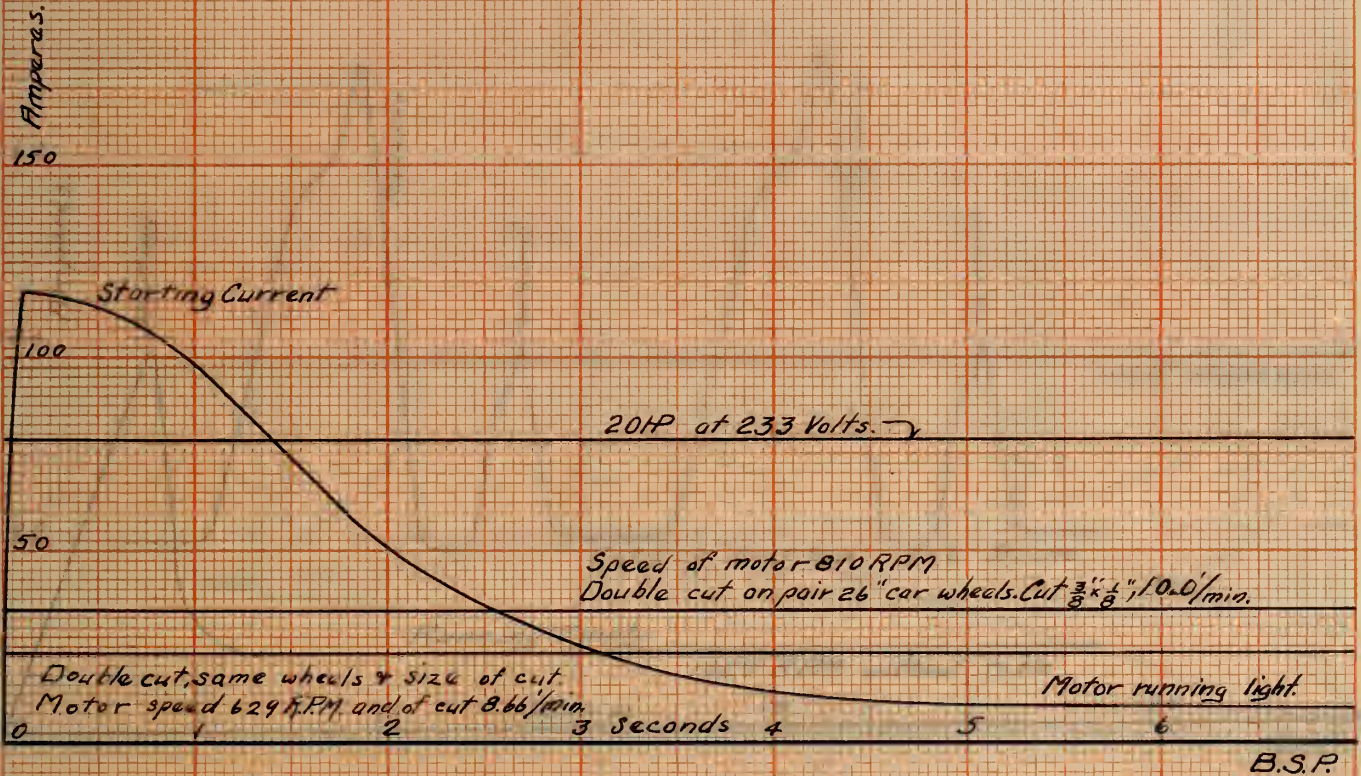 Amperes.
150
Starting Current
100
20HP at 233 Volts.
50
Speed of motor 810 RPM
Double cut on pair 26" car wheels. Cut 3/8" x 1/8", 10.0'/min.
Double cut, same wheels & size of cut.
Motor speed 629 R.P.M. and of cut 8.66'/min.
Motor running light.
0 1 2 3 Seconds 4 5 6
B.S.P.